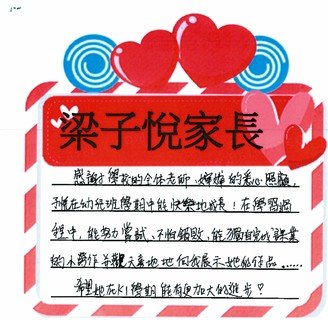 梁子悅家長
感謝學校的全体老師、嬸嬸的悉心照顧，
子悅在幼兒班學期中能快樂地成長！在學習過
程中，能努力嘗試、不怕錯敗，能獨自完成課業
的小習作並樂天喜地地向我展示她的作品……
希望她在K1學期能有更加大的進步♡